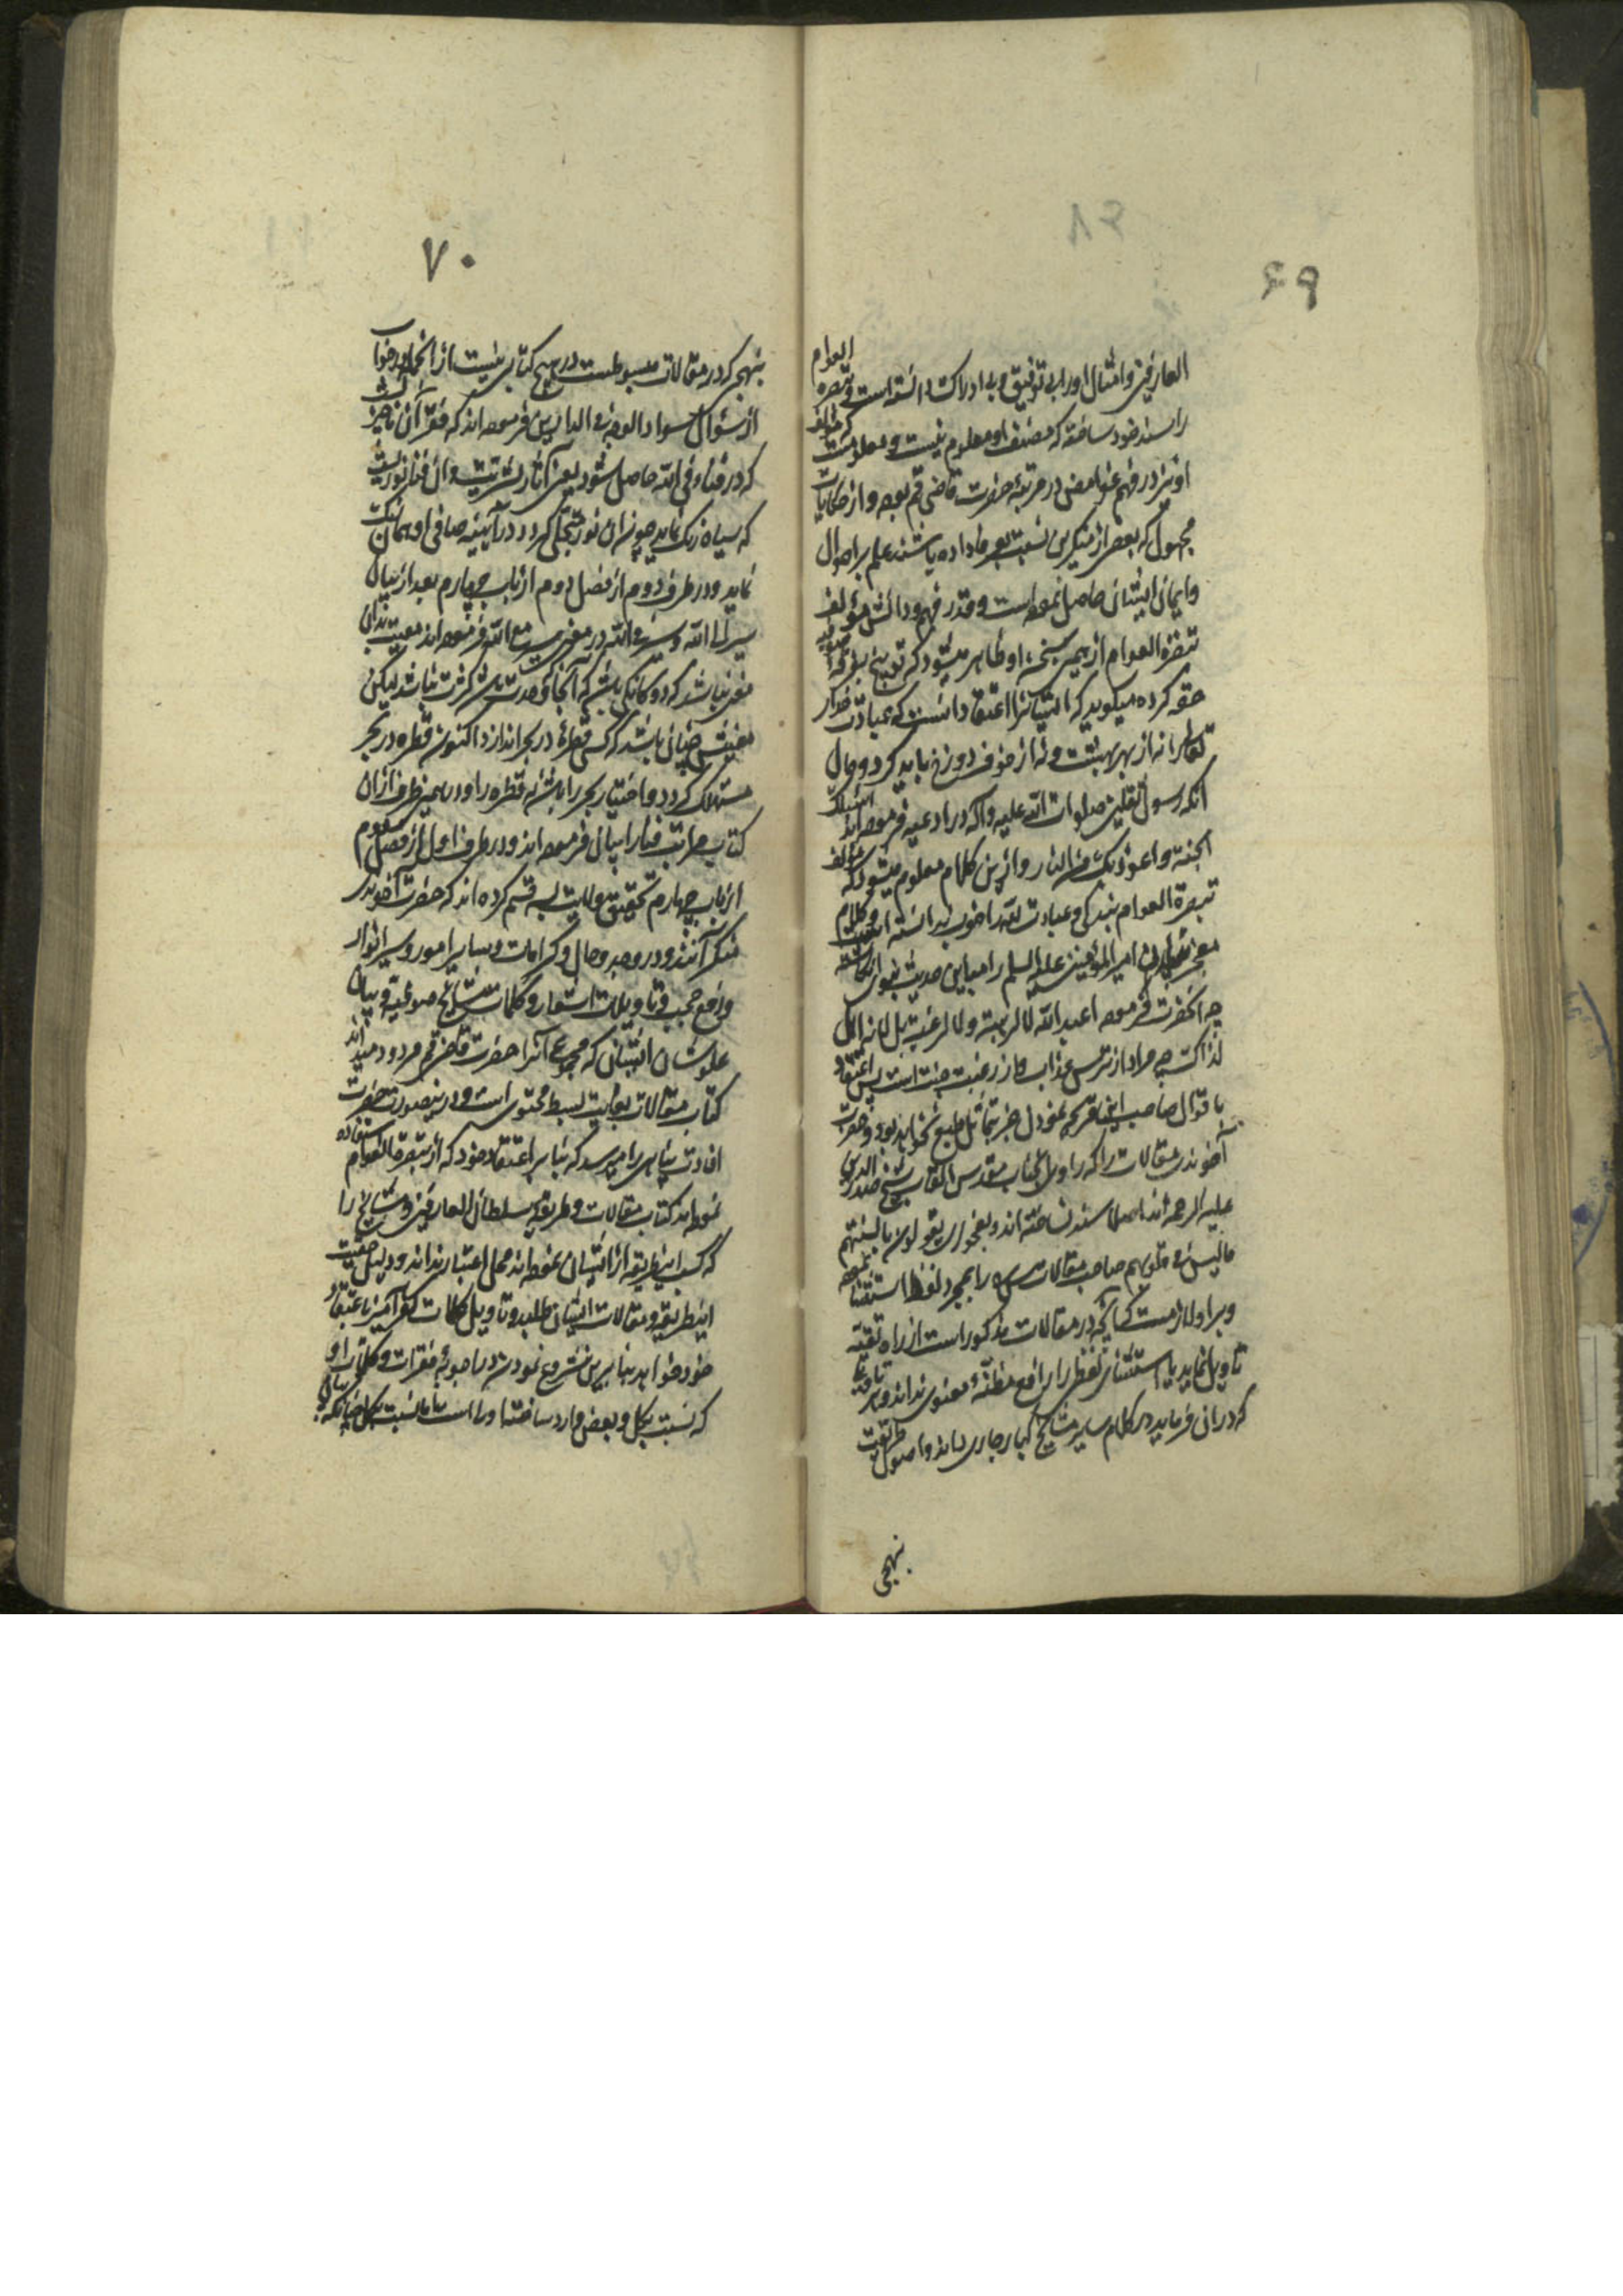 ۶۹
العارفین و امثال او را بی توفیق و بی ادراک دانسته است و تبصره العوام
را سند خود ساخته که مصنف او معلوم نیست و معلومست که مؤلف
او نیز در فهم غوامض در مرتبهٔ حضرت قاضی قم بوده و از حکایات
مجهول که بعضی از منکرین نسبت بعرفا داده باشند علم بر احوال
و ایمان ایشان حاصل نموده است و قدر فهم و دانش مؤلف
تبصرة العوام از همین سخن او ظاهر میشود که توبیخ بفرقه صوفیه
حقه کرده میگوید که ایشانرا اعتقاد آنست که عبادت خدای
تعالی را نه از بهر بهشت و نه از خوف دوزخ باید کرد و حال
آنکه رسول ثقلین صلوات الله علیه و آله در ادعیه فرموده اند اسئلک
الجنة و اعوذ بک من النار و ازین کلام معلوم میشود که مؤلف
تبصرة العوام بندگی و عبادت الله را خوب ندانسته است و کلام
معجز امیر المؤمنین علیه السلم را مباین حدیث نبوی انگاشته
چه آنحضرت فرموده اعبد الله لا لرهبته و لا لرغبته بل لانه اهل
لذاک چه مراد از ترس عذاب و از رغبت جنت است پس اعتقاد
باقوال صاحب این قریحه نمودن جز بتماثل طبع نخواهد بود و حضرت
آخوند مقالات را که راوی آن جناب مقدس القاب شیخ صدر الدین
علیه الرحمه اند اصلا سند نساخته اند و بفحوای یقولون بالسنتهم
ما لیس فی قلوبهم صاحب مقالات را بمجرد لفظ استثنا نموده
و بر او لازمست که آنچه در مقالات مذکور است از راه تقیه
تاویل نماید یا استثنای لفظی را رافع مظنهٔ معنوی نداند و هر تاویل
که در آن فرماید در کلام سایر مشایخ کبار جاری داند و اصول طریقت
بنهجی
۷۰
بنهجی که در مقالات مبسوطست در هیچ کتابی نیست از آنجمله در جواب
از سؤال سواد الوجه فی الدارین فرموده اند که فقر آن ناچیز
که در فناء فی الله حاصل شود یعنی آثار بشریت و آن فنا نوریست
که سیاه رنگ نماید چون آن نور متجلی گردد در آیینه صافی او همان رنگ
نماید و در طرف دوم از فصل دوم از باب چهارم بعد از بیان
سیر الی الله و سیر فی الله در معنی سیر مع الله فرموده اند معیت بدان
معنی نباشد که دوگانگی باشد که آنجا که وحدت باشد کثرت نباشد لیکن
معنیش چنان باشد که کسی قطرهٔ در بحر اندازد اکنون قطره در بحر
مستهلک گردد و اختیار بحر را باشد نه قطره را و در همین طرف از آن
کتاب مراتب فنا را بیان فرموده اند و در طرف اول از فصل سوم
از باب چهارم تحقیق ولایت به قسم کرده اند که حضرت آخوند
منکر آنند و در وجد و حال و کرامات و سایر امور و سیر انوار
و رفع حجب و تاویلات اشعار و کلمات مشایخ صوفیه و بیان
علو شان ایشان که مجموع آنرا حضرت قاضی قم مردود میداند
کتاب مقالات بغایت بسط محتوی است و درینصورت حضرت
افادت پناهی را میرسد که بنا بر اعتقاد خود که از تبصرة العوام استفاده
نموده اند کتاب مقالات و طریقه سلطان العارفین و مشایخ را
که کسب اینطریقه از ایشان نموده اند محل اعتبار ندانند و دلیل حقیت
اینطریقه و مقالات ایشان طلبد و تاویل کلمات کفر آمیز باعتقاد
خود خواهد بنا برین شروع نمودن در اجوبهٔ فقرات و کلمات او
که نسبت بکل و بعض وارد ساخته اولی است اما نسبت بکل چنانکه